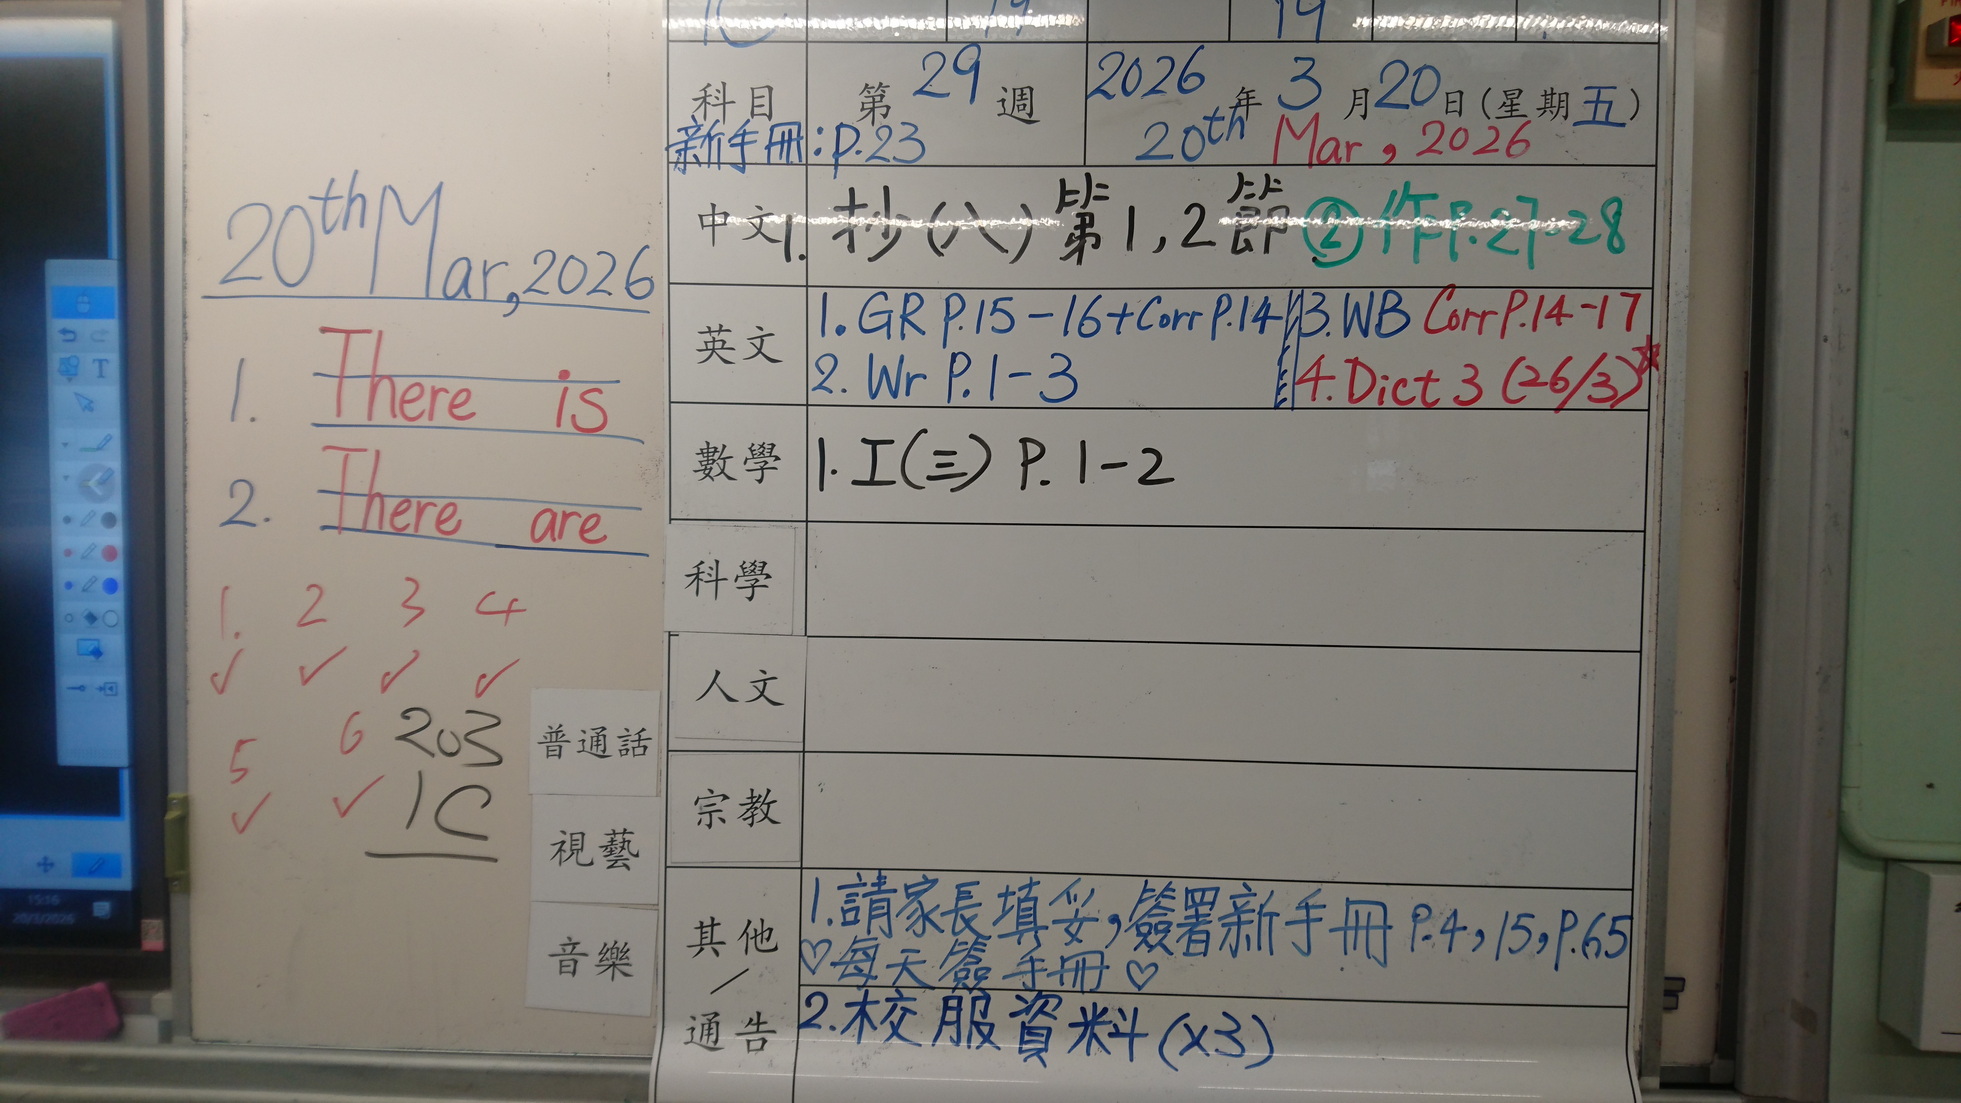 20th Mar, 2026
1. There is
2. There are
1. 2 3 4
✓ ✓ ✓ ✓
5 6
✓ ✓
203
1C
普通話
視藝
音樂
15:16
20/3/2026
1C 19 19
科目 第29週 2026年3月20日(星期五)
新手冊:p.23 20th Mar, 2026
中文 1. 抄(八)第1,2節 ②作P.27-28
英文 1. GR P.15-16+Corr P.14 3. WB Corr P.14-17
2. Wr P.1-3 4. Dict 3 (26/3)*
數學 1. 工(三) P. 1-2
科學
人文
宗教
其他/通告 1. 請家長填妥,簽署新手冊 P.4, 15, P.65
♡每天簽手冊♡
2. 校服資料(x3)